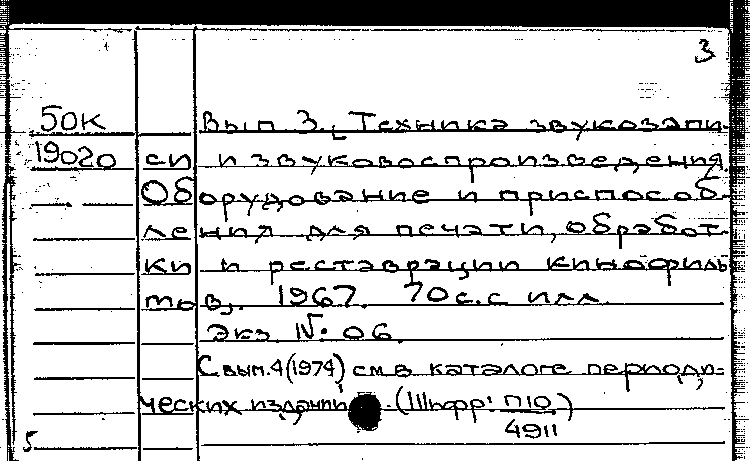 3
50К Вып 3. [Техника звукозапи-
19020 си и звуковоспроизведения.
Оборудование и приспособ-
ления для печати, обработ-
ки и реставрации кинофиль-
мов]. 1967. 70 с. с илл.
Экз. №: 06.
С вып. 4 (1974) см. в каталоге периоди-
ческих изданий. (Шифр: П10/4911)
5